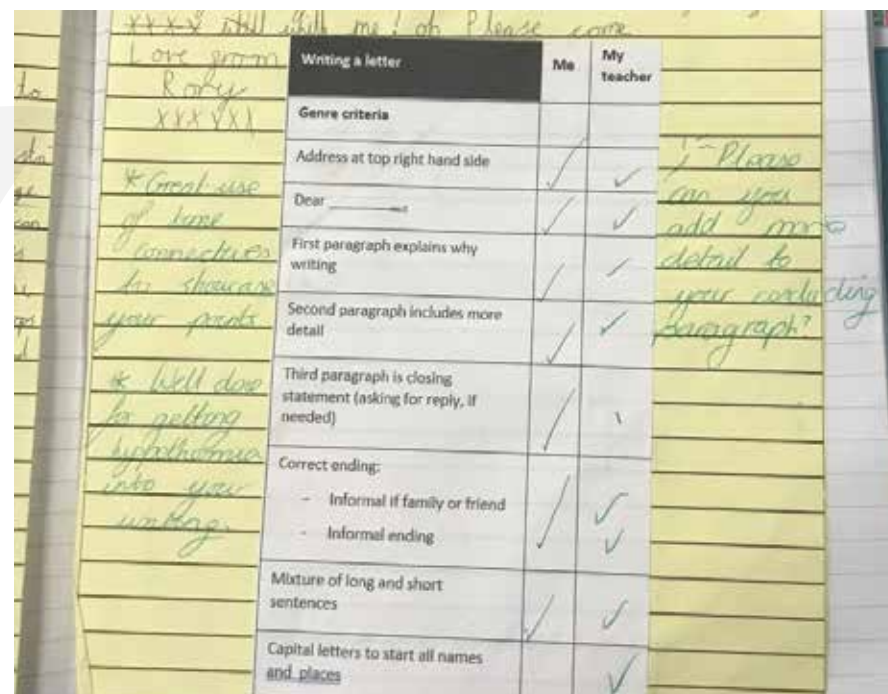 me! oh Please come
Love from
Rory
xxxxxx
* Great use
of time
connectives
to showcase
your points
* Well done
for getting
hypothermia
into your
writing.
Writing a letter
Me
My teacher
Genre criteria
Address at top right hand side
Dear ________
First paragraph explains why
writing
Second paragraph includes more
detail
Third paragraph is closing
statement (asking for reply, if
needed)
Correct ending:
- Informal if family or friend
- Informal ending
Mixture of long and short
sentences
Capital letters to start all names
and places
Please
can you
add more
detail to
your concluding
paragraph?